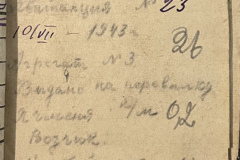 Квитанция № 23
10/VII - 1943 г.
26
Агрегат № 3
Выдано на перевалку
Ячменя к/м 0,2
Возчик